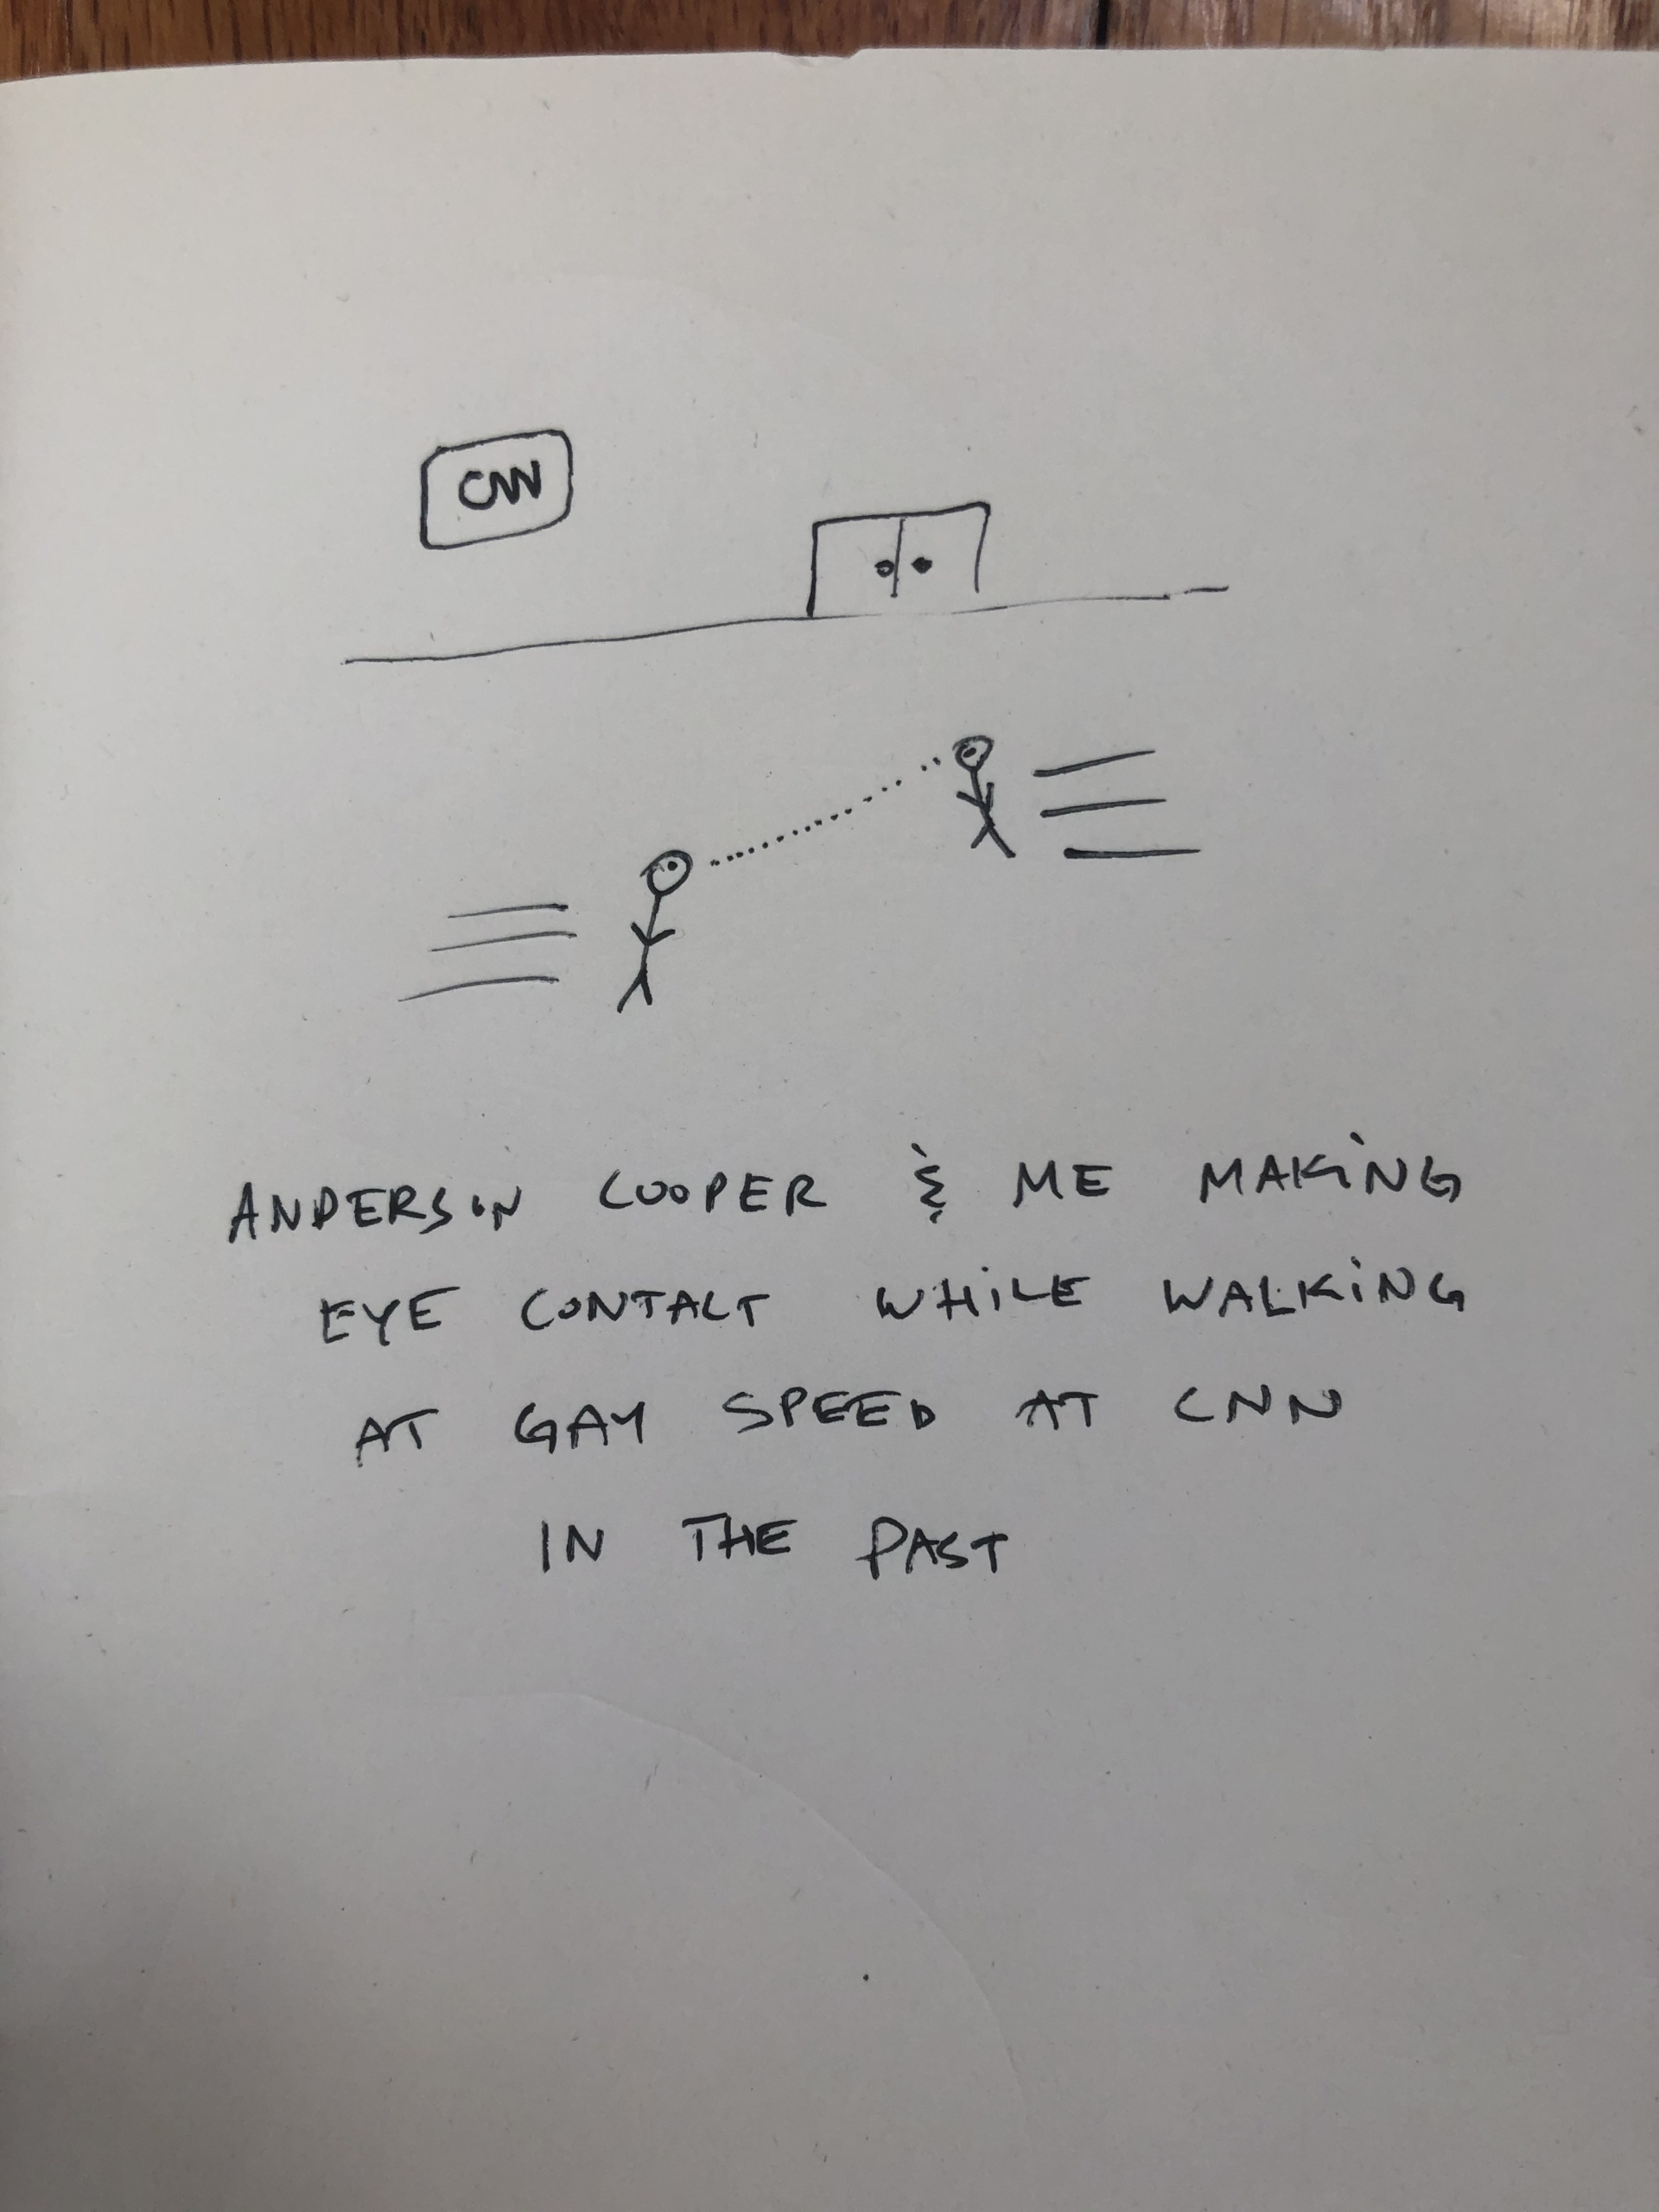 CNN
ANDERSON COOPER & ME MAKING
EYE CONTACT WHILE WALKING
AT GAY SPEED AT CNN
IN THE PAST